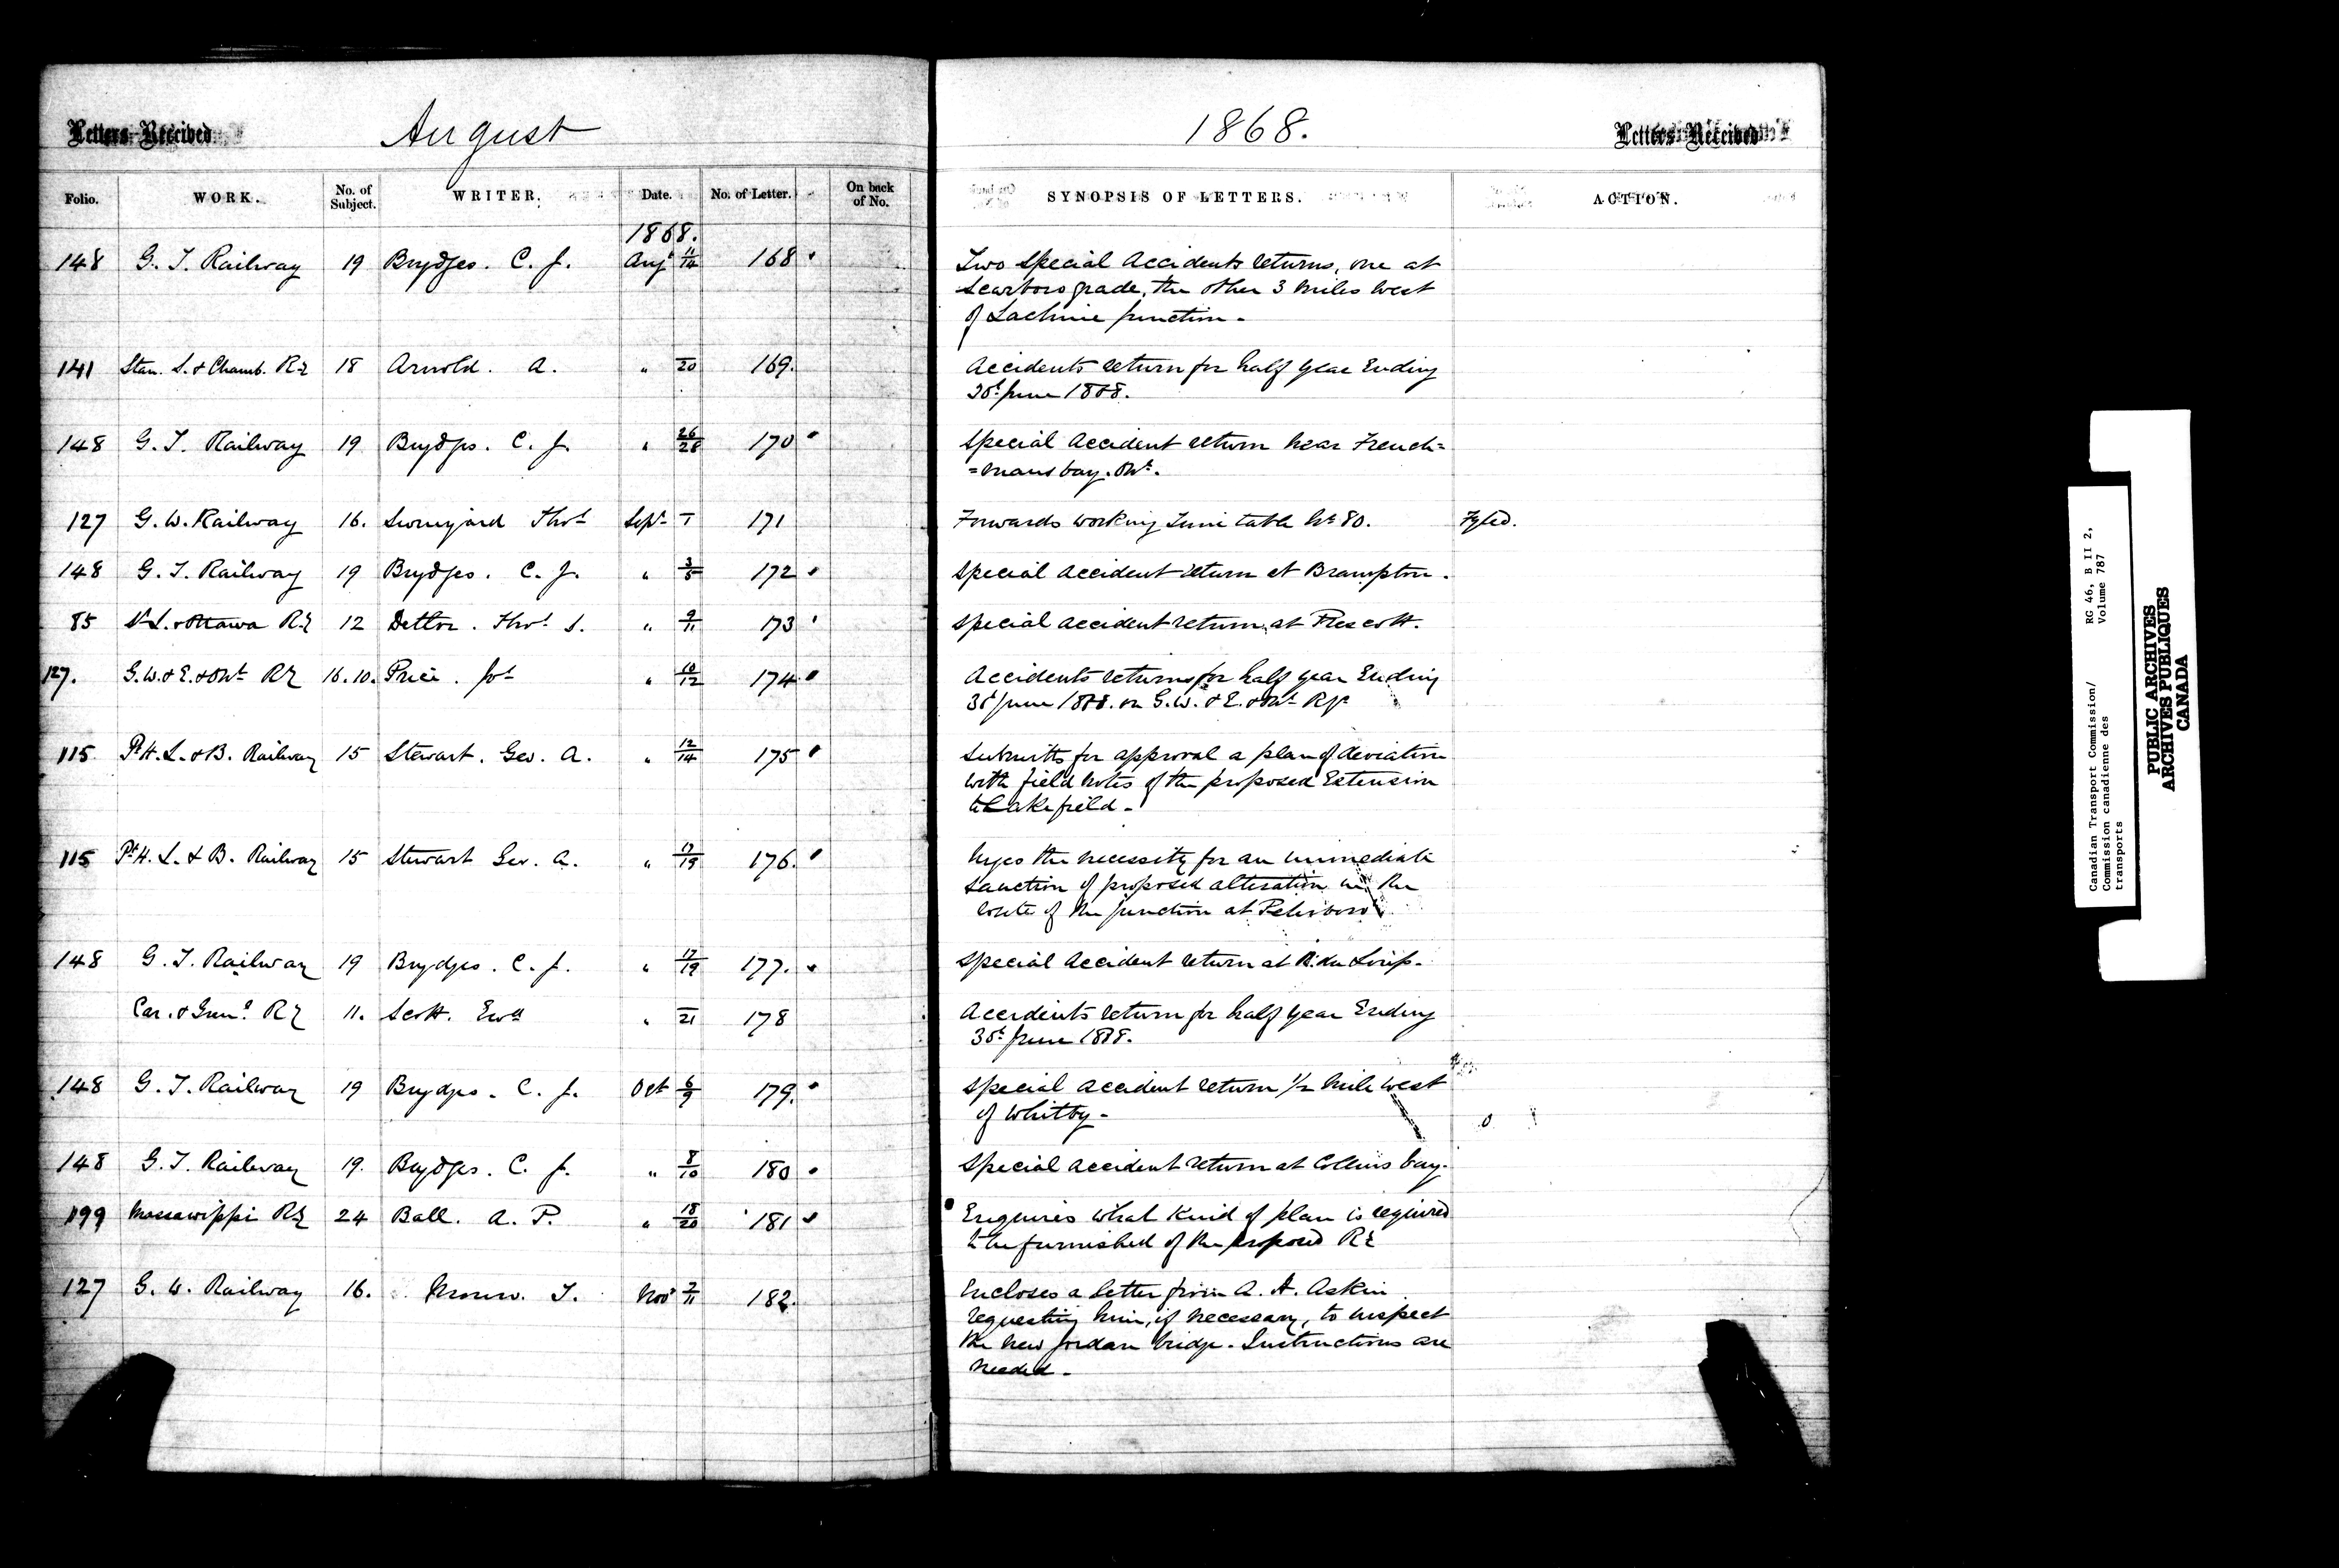 Letters Received August
1868. Letters Received
Folio. WORK. No. of Subject. WRITER. Date. No. of Letter. On back of No. SYNOPSIS OF LETTERS. ACTION.
1868.
148 G. T. Railway 19 Brydges. C. J. Augt 11/14 168 Two special Accidents returns, one at
Scarboro grade, the other 3 miles west
of Lachine junction -
141 Stan. S. & Chamb. Ry 18 Arnold. A. " 20 169. Accidents return for half year Ending
30th June 1868.
148 G. T. Railway 19 Brydges. C. J. " 26/28 170 Special Accident return near French=
=mans bay. Ont.
127 G. W. Railway 16. Swinyard Thos Sept 1 171 Forwards working Time table No 80. Fyled.
148 G. T. Railway 19 Brydges. C. J. " 3/5 172 Special Accident return at Brampton.
85 St L. & Ottawa Ry 12 Detlor. Thos. S. " 9/11 173 Special accident return at Prescott.
127. G. W. & E. & Ont Ry 16.10. Price. Jos " 10/12 174 Accidents returns for half year Ending
30th June 1868. on G. W. & E. & Ont Rys
115 Pt H. L. & B. Railway 15 Stewart. Geo. A. " 12/14 175 Submitts for approval a plan of deviation
with field notes of the proposed Extension
to Lakefield -
115 Pt H. L. & B. Railway 15 Stewart Geo. A. " 17/19 176. Urges the necessity for an immediate
sanction of proposed alteration in the
route of the junction at Peterboro
148 G. T. Railway 19 Brydges. C. J. " 17/19 177. Special Accident return at R. du Loup -
Car. & Gren. Ry 11. Scott. " 21 178 Accidents return for half year Ending
30th June 1868.
148 G. T. Railway 19 Brydges. C. J. Oct 6/9 179. Special accident return 1/2 mile west
of Whitby -
148 G. T. Railway 19. Brydges. C. J. " 8/10 180 Special accident return at Collins bay.
199 Massawippi Ry 24 Ball. A. P. " 18/20 181 Enquires what kind of plan is required
to be furnished of the proposed Ry
127 G. W. Railway 16. T. Novr 7/11 182. Encloses a letter from A. A. Askin
requesting him, if necessary, to inspect
the new Jordan bridge. Instructions are
needed -
Canadian Transport Commission/
Commission canadienne des
transports
RG 46, B II 2,
Volume 787
PUBLIC ARCHIVES
ARCHIVES PUBLIQUES
CANADA